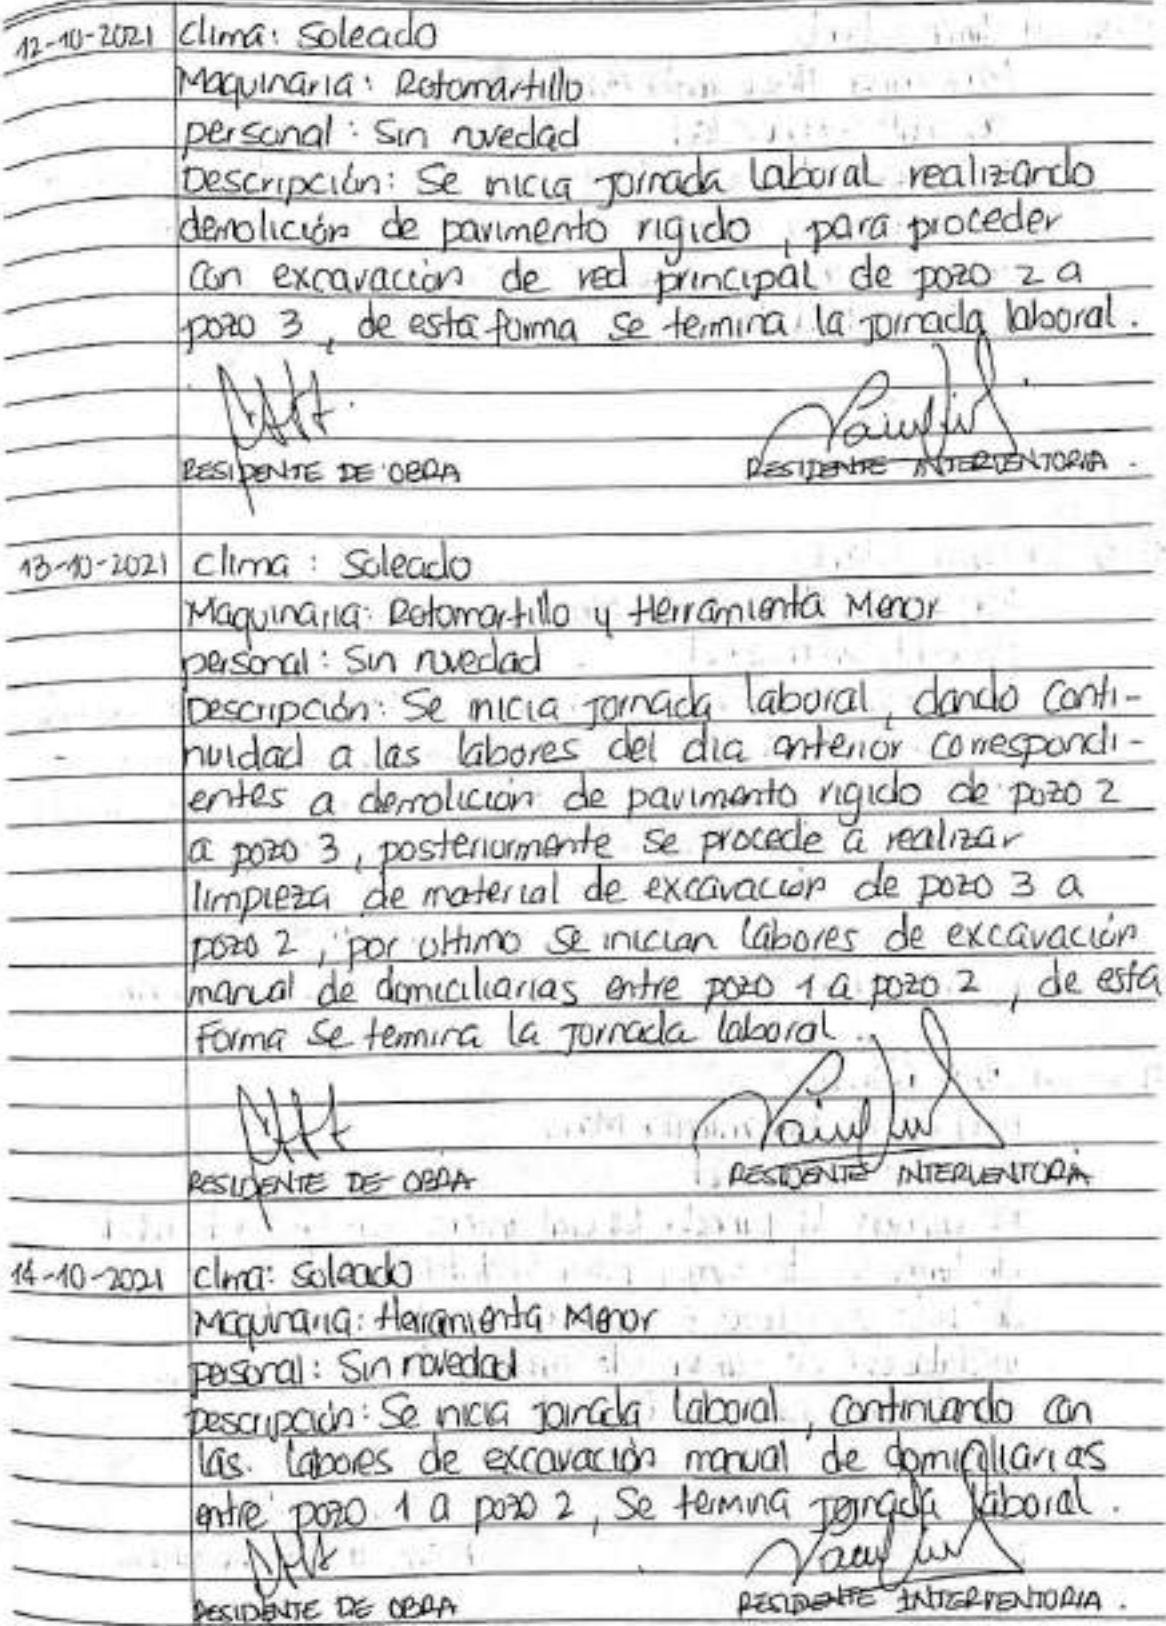 12-10-2021 Clima: Soleado
Maquinaria: Rotomartillo
personal: Sin novedad
Descripción: Se inicia jornada laboral realizando
demolición de pavimento rigido, para proceder
con excavación de red principal de pozo 2 a
pozo 3, de esta forma se termina la jornada laboral.
RESIDENTE DE OBRA RESIDENTE INTERVENTORIA.
13-10-2021 Clima: Soleado
Maquinaria: Rotomartillo y Herramienta Menor
personal: Sin novedad
Descripción: Se inicia jornada laboral, dando conti-
nuidad a las labores del dia anterior correspondi-
entes a demolición de pavimento rigido de pozo 2
a pozo 3, posteriormente se procede a realizar
limpieza de material de excavación de pozo 3 a
pozo 2, por ultimo se inician labores de excavación
manual de domiciliarias entre pozo 1 a pozo 2, de esta
Forma se termina la jornada laboral.
RESIDENTE DE OBRA RESIDENTE INTERVENTORIA
14-10-2021 Clima: Soleado
Maquinaria: Herramienta Menor
personal: Sin novedad
Descripción: Se inicia jornada laboral, continuando con
las labores de excavación manual de domiciliarias
entre pozo 1 a pozo 2, Se termina jornada laboral.
RESIDENTE DE OBRA RESIDENTE INTERVENTORIA.